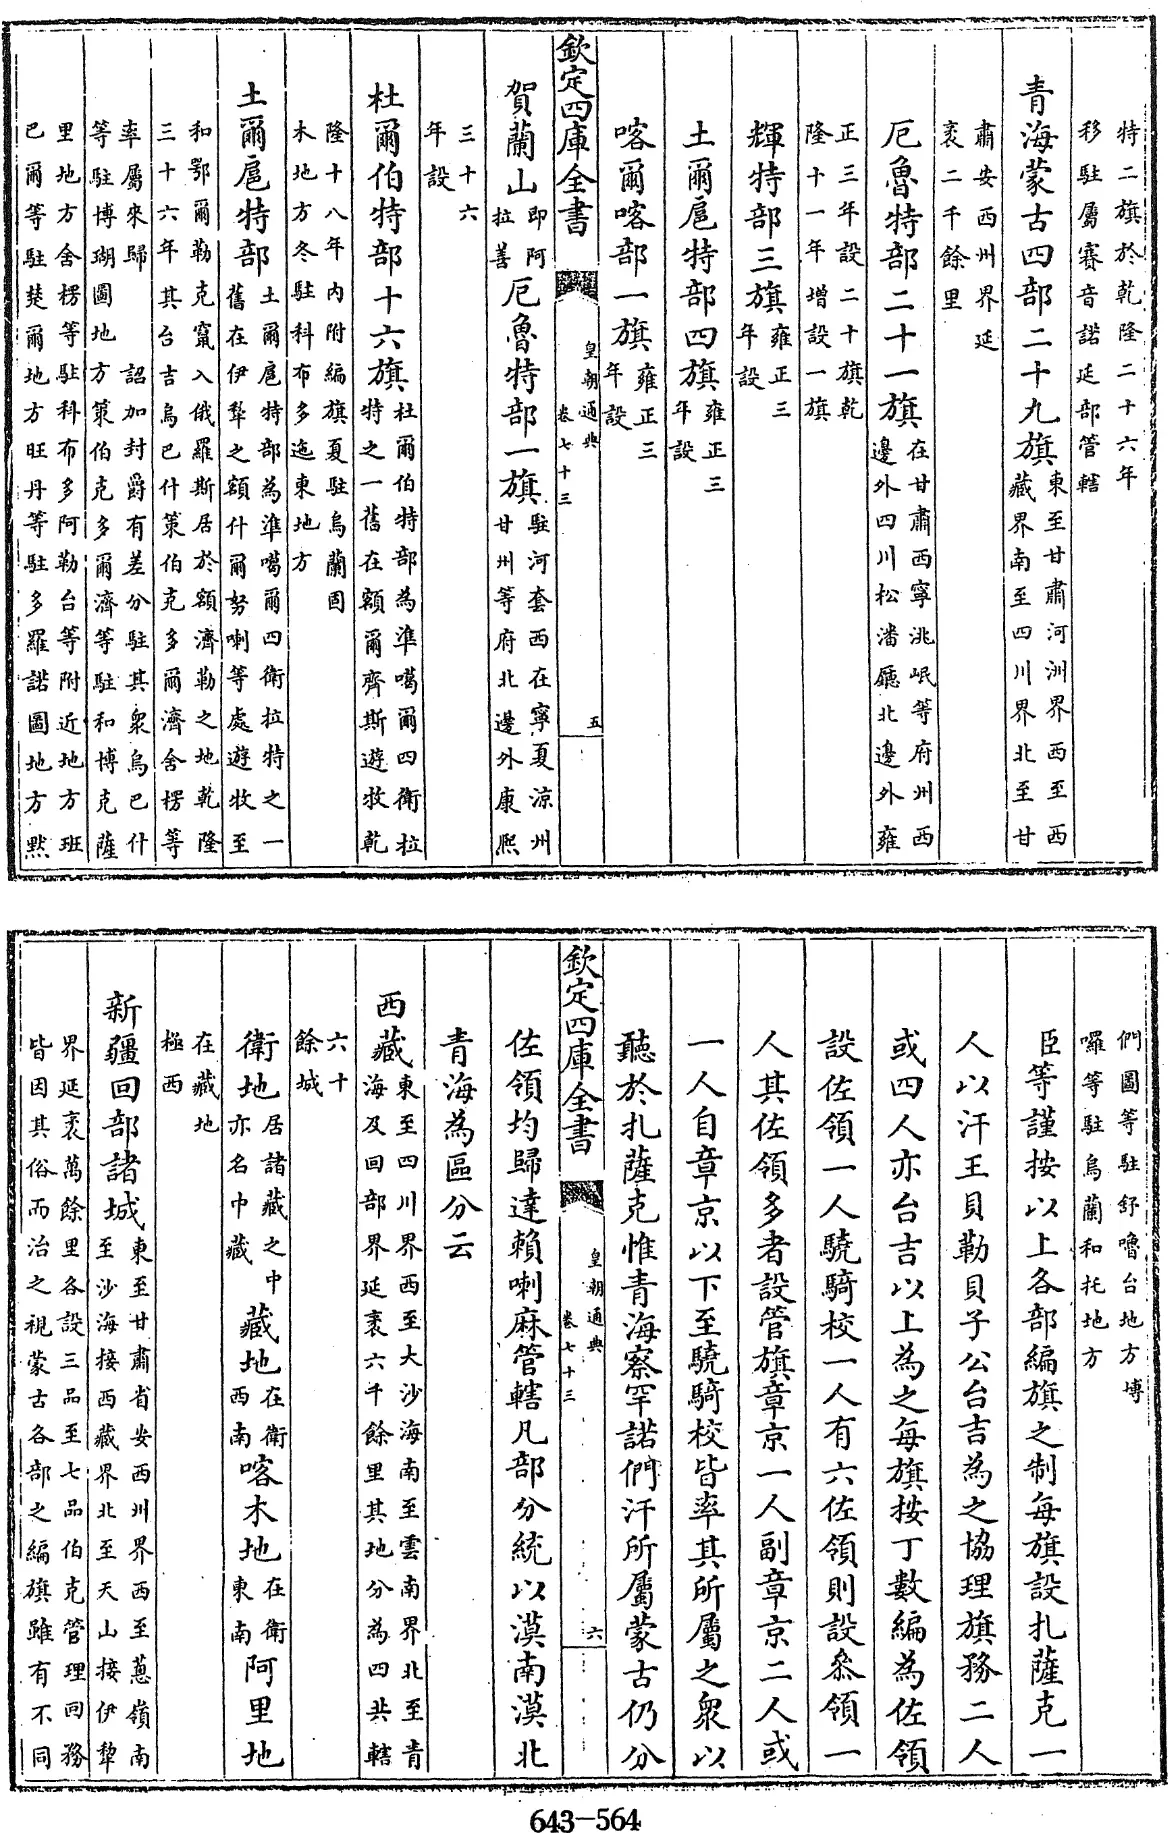 特二旗於乾隆二十六年
移駐屬賽音諾延部管轄
青海蒙古四部二十九旗東至甘肅河洲界西至西
藏界南至四川界北至甘
肅安西州界延
袤二千餘里
厄魯特部二十一旗在甘肅西寧洮岷等府州西
邊外四川松潘廳北邊外雍
正三年設二十旗乾
隆十一年增設一旗
輝特部三旗雍正三
年設
土爾扈特部四旗雍正三
年設
喀爾喀部一旗雍正三
年設
欽定四庫全書
皇朝通典
卷七十三
五
賀蘭山即阿
拉善厄魯特部一旗駐河套西在寧夏涼州
甘州等府北邊外康熙
三十六
年設
杜爾伯特部十六旗杜爾伯特部為準噶爾四衛拉
特之一舊在額爾齊斯遊牧乾
隆十八年內附編旗夏駐烏蘭固
木地方冬駐科布多迤東地方
土爾扈特部土爾扈特部為準噶爾四衛拉特之一
舊在伊犂之額什爾努喇等處遊牧至
和鄂爾勒克竄入俄羅斯居於額濟勒之地乾隆
三十六年其台吉烏巴什策伯克多爾濟舍楞等
率屬來歸 詔加封爵有差分駐其衆烏巴什
等駐博瑚圖地方策伯克多爾濟等駐和博克薩
里地方舍楞等駐科布多阿勒台等附近地方班
巴爾等駐楚爾地方旺丹等駐多羅諾圖地方默
們圖等駐舒嚕台地方博
囉等駐烏蘭和托地方
臣等謹按以上各部編旗之制每旗設扎薩克一
人以汗王貝勒貝子公台吉為之協理旗務二人
或四人亦台吉以上為之每旗按丁數編為佐領
設佐領一人驍騎校一人有六佐領則設叅領一
人其佐領多者設管旗章京一人副章京二人或
一人自章京以下至驍騎校皆率其所屬之衆以
聽於扎薩克惟青海察罕諾們汗所屬蒙古仍分
欽定四庫全書
皇朝通典
卷七十三
六
佐領均歸達賴喇麻管轄凡部分統以漠南漠北
青海為區分云
西藏東至四川界西至大沙海南至雲南界北至青
海及回部界延袤六千餘里其地分為四共轄
六十
餘城
衛地居諸藏之中
亦名中藏 藏地在衛
西南喀木地在衛
東南阿里地
在藏地
極西
新疆回部諸城東至甘肅省安西州界西至蔥嶺南
至沙海接西藏界北至天山接伊犂
界延袤萬餘里各設三品至七品伯克管理回務
皆因其俗而治之視蒙古各部之編旗雖有不同
643-564